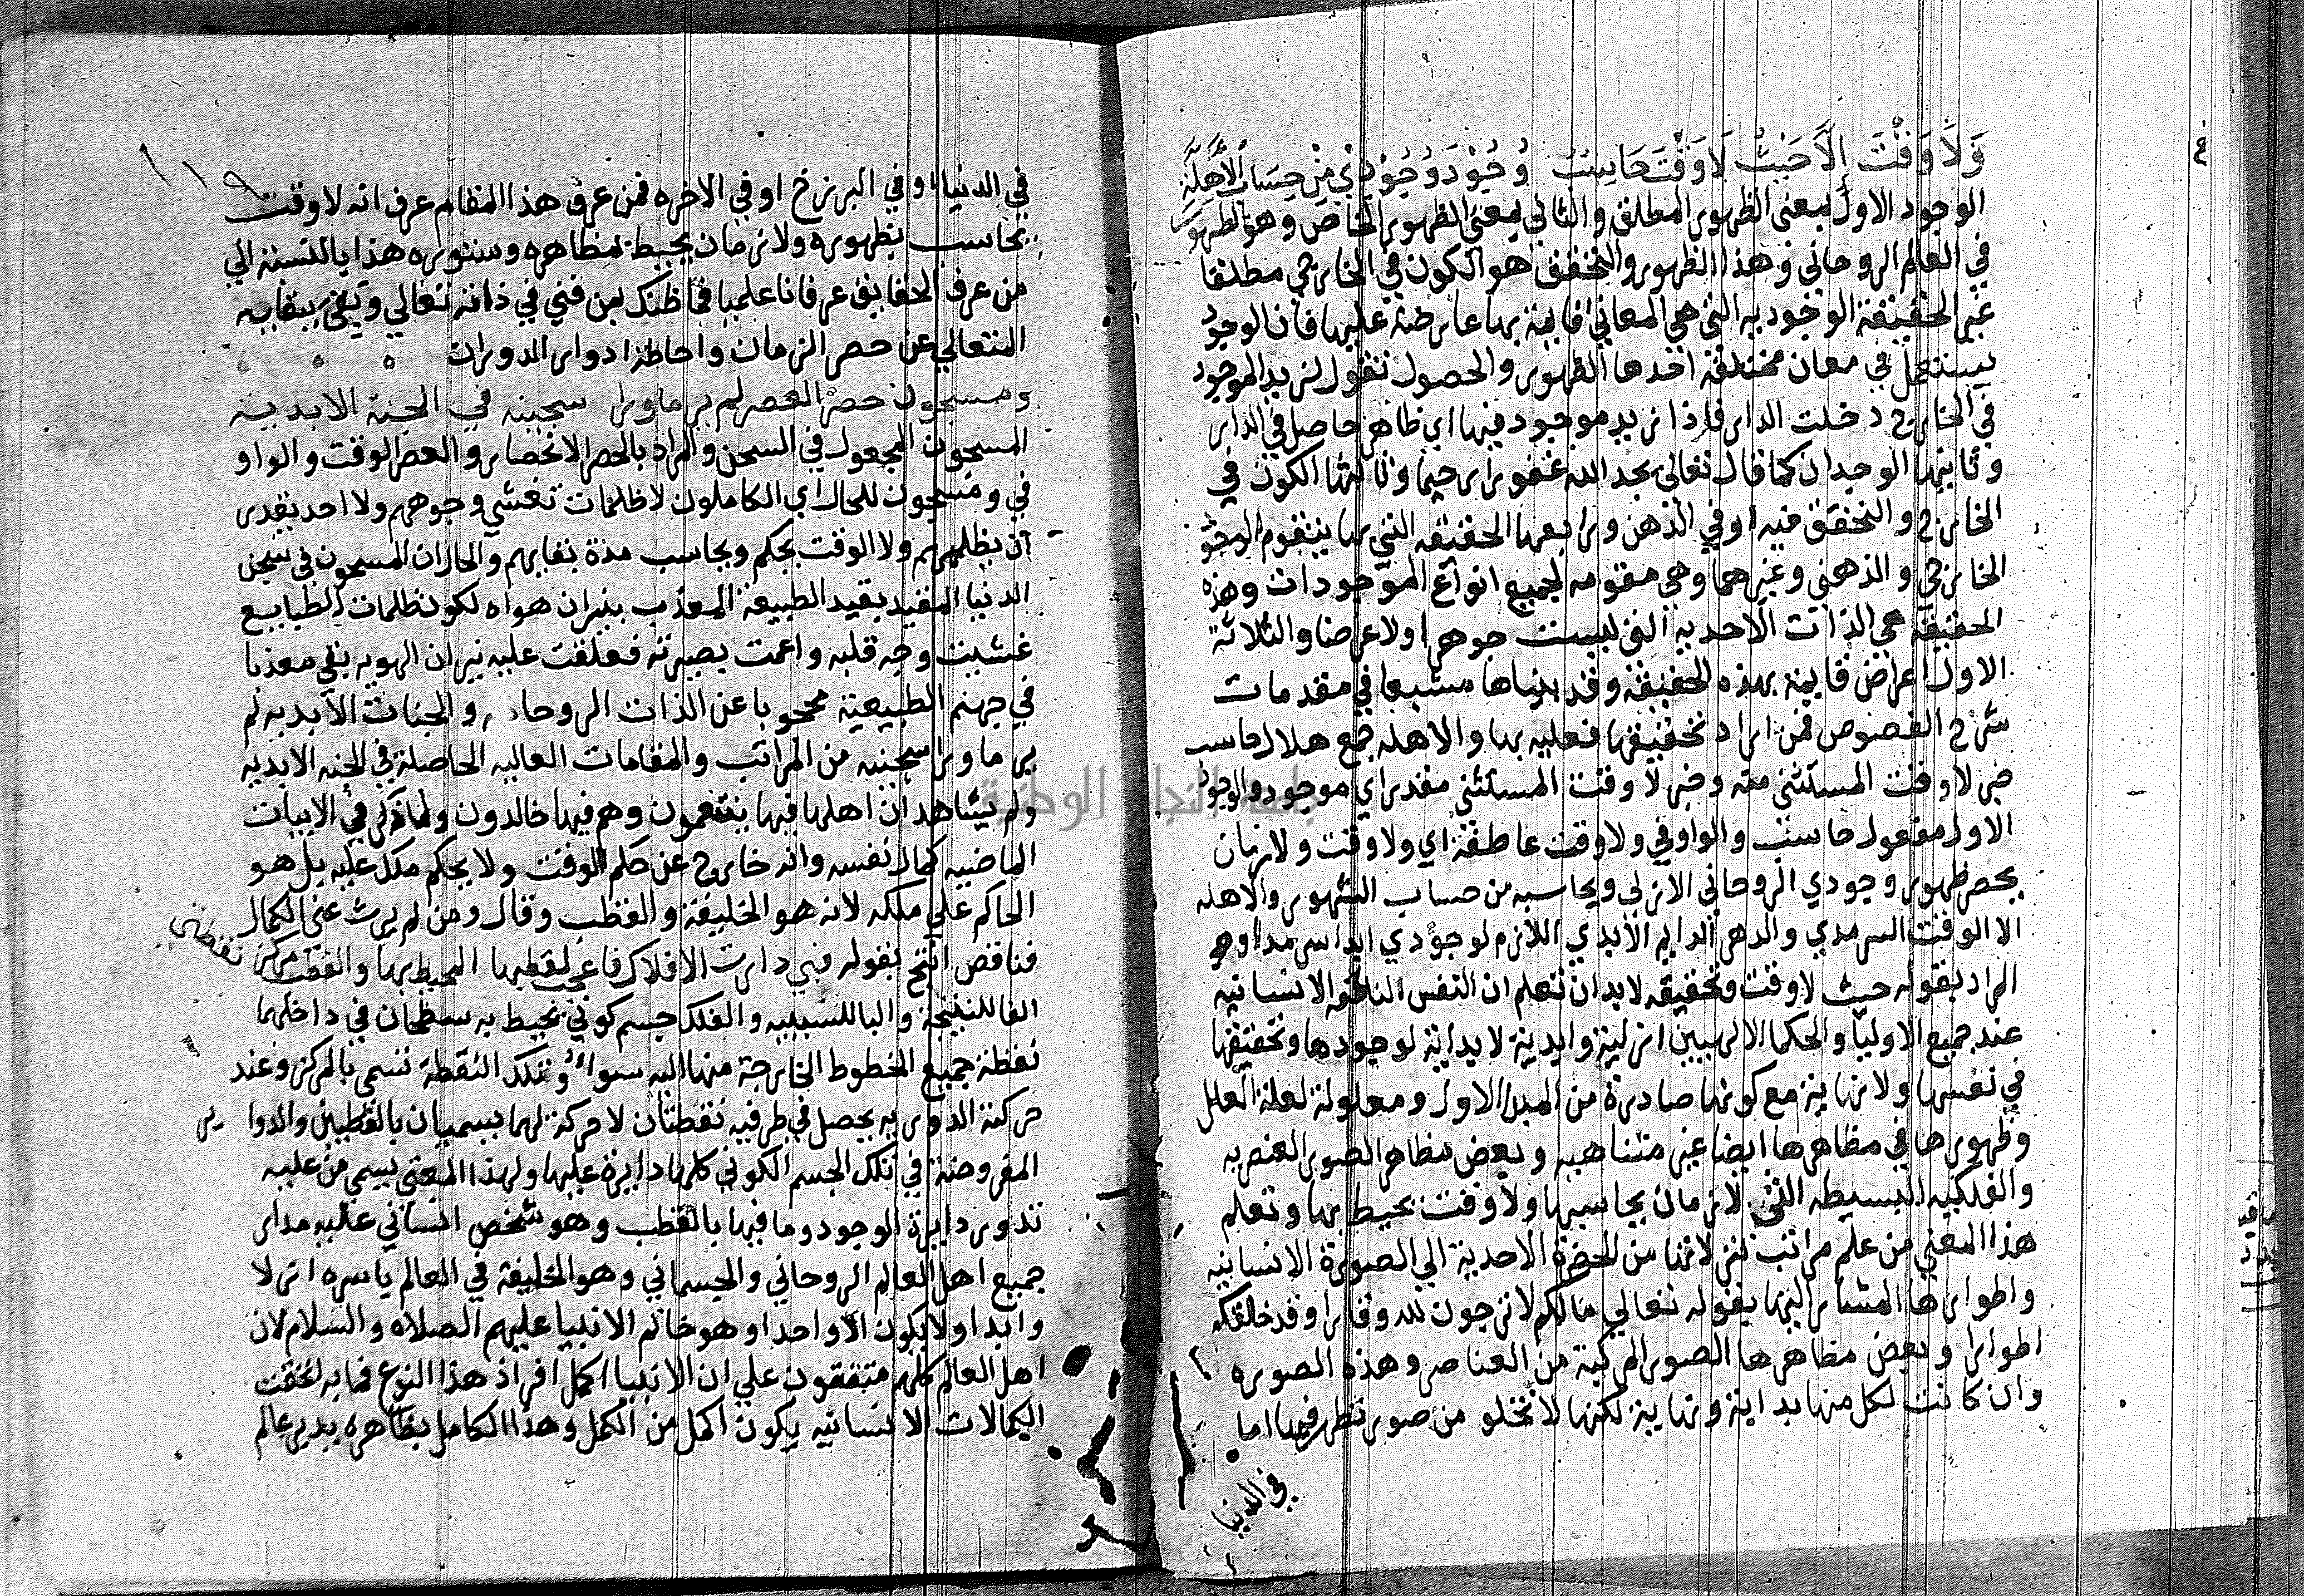 وَلَا وَقْتَ إِلَّا حَيْثُ لَا وَقْتَ حَاسِبٌ وُجُوْدَ وُجُوْدِيْ مِنْ حِسَابِ الْأَهِلَّةِ
الوجود الاول بمعنى الظهور المطلق والثاني بمعنى الظهور الخاص وهو الظهور
في العالم الروحاني وهذا الظهور والتحقق هو الكون في الخارجي مطلقا
غير الحقيقة الوجوديه التي هي المعاني قايمة بها عارضة عليها فان الوجود
يستعمل في معان مختلفة احدها الظهور والحصول تقول لزيد الموجود
في الخارج دخلت الدار فاذا زيد موجود فيها اي ظاهر حاصل في الدار
وثانيها الوجدان كما قال تعالى يجد الله غفورا رحيما وثالثها الكون في
الخارج والتحقق فيه او في الذهن ورابعها الحقيقه التي بها يتقوم الوجود
الخارجي والذهني وغيرهما وهي مقومه لجميع انواع الموجودات وهذه
الحقيقة هي الذات الاحديه التي ليست جوهرا ولا عرضا والثلاثة
الاول اعراض قايمة بهذه الحقيقة وقد بيناها مشبعا في مقدمات
شرح الفصوص فمن اراد تحقيقها فعليه بها والاهله جمع هلال حاسب
خبر لا وقت المستثنى منه وخبر لا وقت المستثنى مقدر اي موجود والوجود
الاول مفعول حاسب والواو في ولا وقت عاطفة اي ولا وقت ولا زمان
يحصر ظهور وجودي الروحاني الازلي ويحاسبه من حساب الشهور والاهله
الا الوقت السرمدي والدهر الدايم الابدي اللازم لوجودي ابدا سرمدا وهو
المراد بقوله حيث لا وقت وتحقيقه لابد ان تعلم ان النفس الناطقه الانسانيه
عند جميع الاوليا والحكما الالهيين ازلية وابدية لا بداية لوجودها وتحقيقها
في نفسها ولا نهاية مع كونها صادرة من المبدا الاول ومعلولة لعلة العلل
وظهورها في مظاهرها ايضا غير متناهيه وبعض مظاهر الصور العنصريه
والفلكيه البسيطه التي لا زمان يحاسبها ولا وقت يحيط بها وتعلم
هذا المعني من علم مراتب تنزلاتنا من الحضرة الاحدية الي الصورة الانسانيه
واطوارها المشار اليها بقوله تعالي مالكم لا ترجون لله وقارا وقد خلقكم
اطوارا وبعض مظاهرها الصور المركبة من العناصر وهذه الصوره
وان كانت لكل منها بداية ونهاية لكنها لا تخلو من صور تظهر فيها اما
في الدنيا
١١٩
في الدنيا او في البرزخ او في الاخره فمن عرف هذا المقام عرف انه لا وقت
يحاسب بظهوره ولا زمان يحيط بمظاهره وستوره هذا بالنسبة الي
من عرف الحقايق عرفانا علميا فما ظنك بمن فني في ذاته تعالي وبقي ببقايه
المتعالي عن حصر الزمان واحاطة ادوار الدوران
ومسجون حصر العصر لم ير ماورا سجينه في الجنة الابدية
المسجون المجعول في السجن والمراد بالحصر الانحصار والعصر الوقت والواو
في ومسجون للحال اي الكاملون لا ظلمات تغشي وجوههم ولا احد يقدر
ان يظلمهم ولا الوقت يحكم ويحاسب مدة بقايهم والحال ان المسجون في سجن
الدنيا المقيد بقيد الطبيعة المعذب بنيران هواه لكون ظلمات الطبايع
غشيت وجه قلبه واعمت بصيرته فعلقت عليه نيران الهويه بقي معذبا
في جهنم الطبيعية محجوبا عن الذات الروحا والجنات الابديه لم
ير ماورا سجينه من المراتب والمقامات العاليه الحاصلة في الجنه الابديه
ولم يشاهد ان اهلها فيها يتنعمون وهم فيها خالدون ولما ذكر في الابيات
الماضيه كمال نفسه وانه خارج عن حكم الوقت ولا يحكم ملك عليه بل هو
الحاكم علي ملكه لانه هو الخليفة والقطب وقال ومن لم يرث عني الكمال
فناقص انتج بقوله فبي دارت الافلاك فاعجب لقطبها المحيط بها والقطب مركز نقطتي
الفا للنتيجة والبا للسببيه والفلك جسم كوني يحيط به سطحان في داخلهما
نقطة جميع الخطوط الخارجة منها اليه سواء وتلك النقطة تسمي بالمركز وعند
حركته الدوريه يحصل في طرفيه نقطتان لا حركة لهما يسميان بالقطبين والدواير
المفروضة في تلك الجسم الكوني كلها دايرة عليها ولهذا المعني يسمي من عليه
تدور دايرة الوجود وما فيها بالقطب وهو شخص انساني عليه مدار
جميع اهل العالم الروحاني والجسماني وهو الخليفة في العالم ياسره ازلا
وابدا ولا يكون الا واحدا وهو خاتم الانبيا عليهم الصلاه والسلام لان
اهل العالم كلهم متفقون علي ان الانبيا اكمل افراد هذا النوع فما به تحقت
الكمالات الانسانيه يكون اكمل من الكمل وهذا الكامل بظاهره يدبر عالم